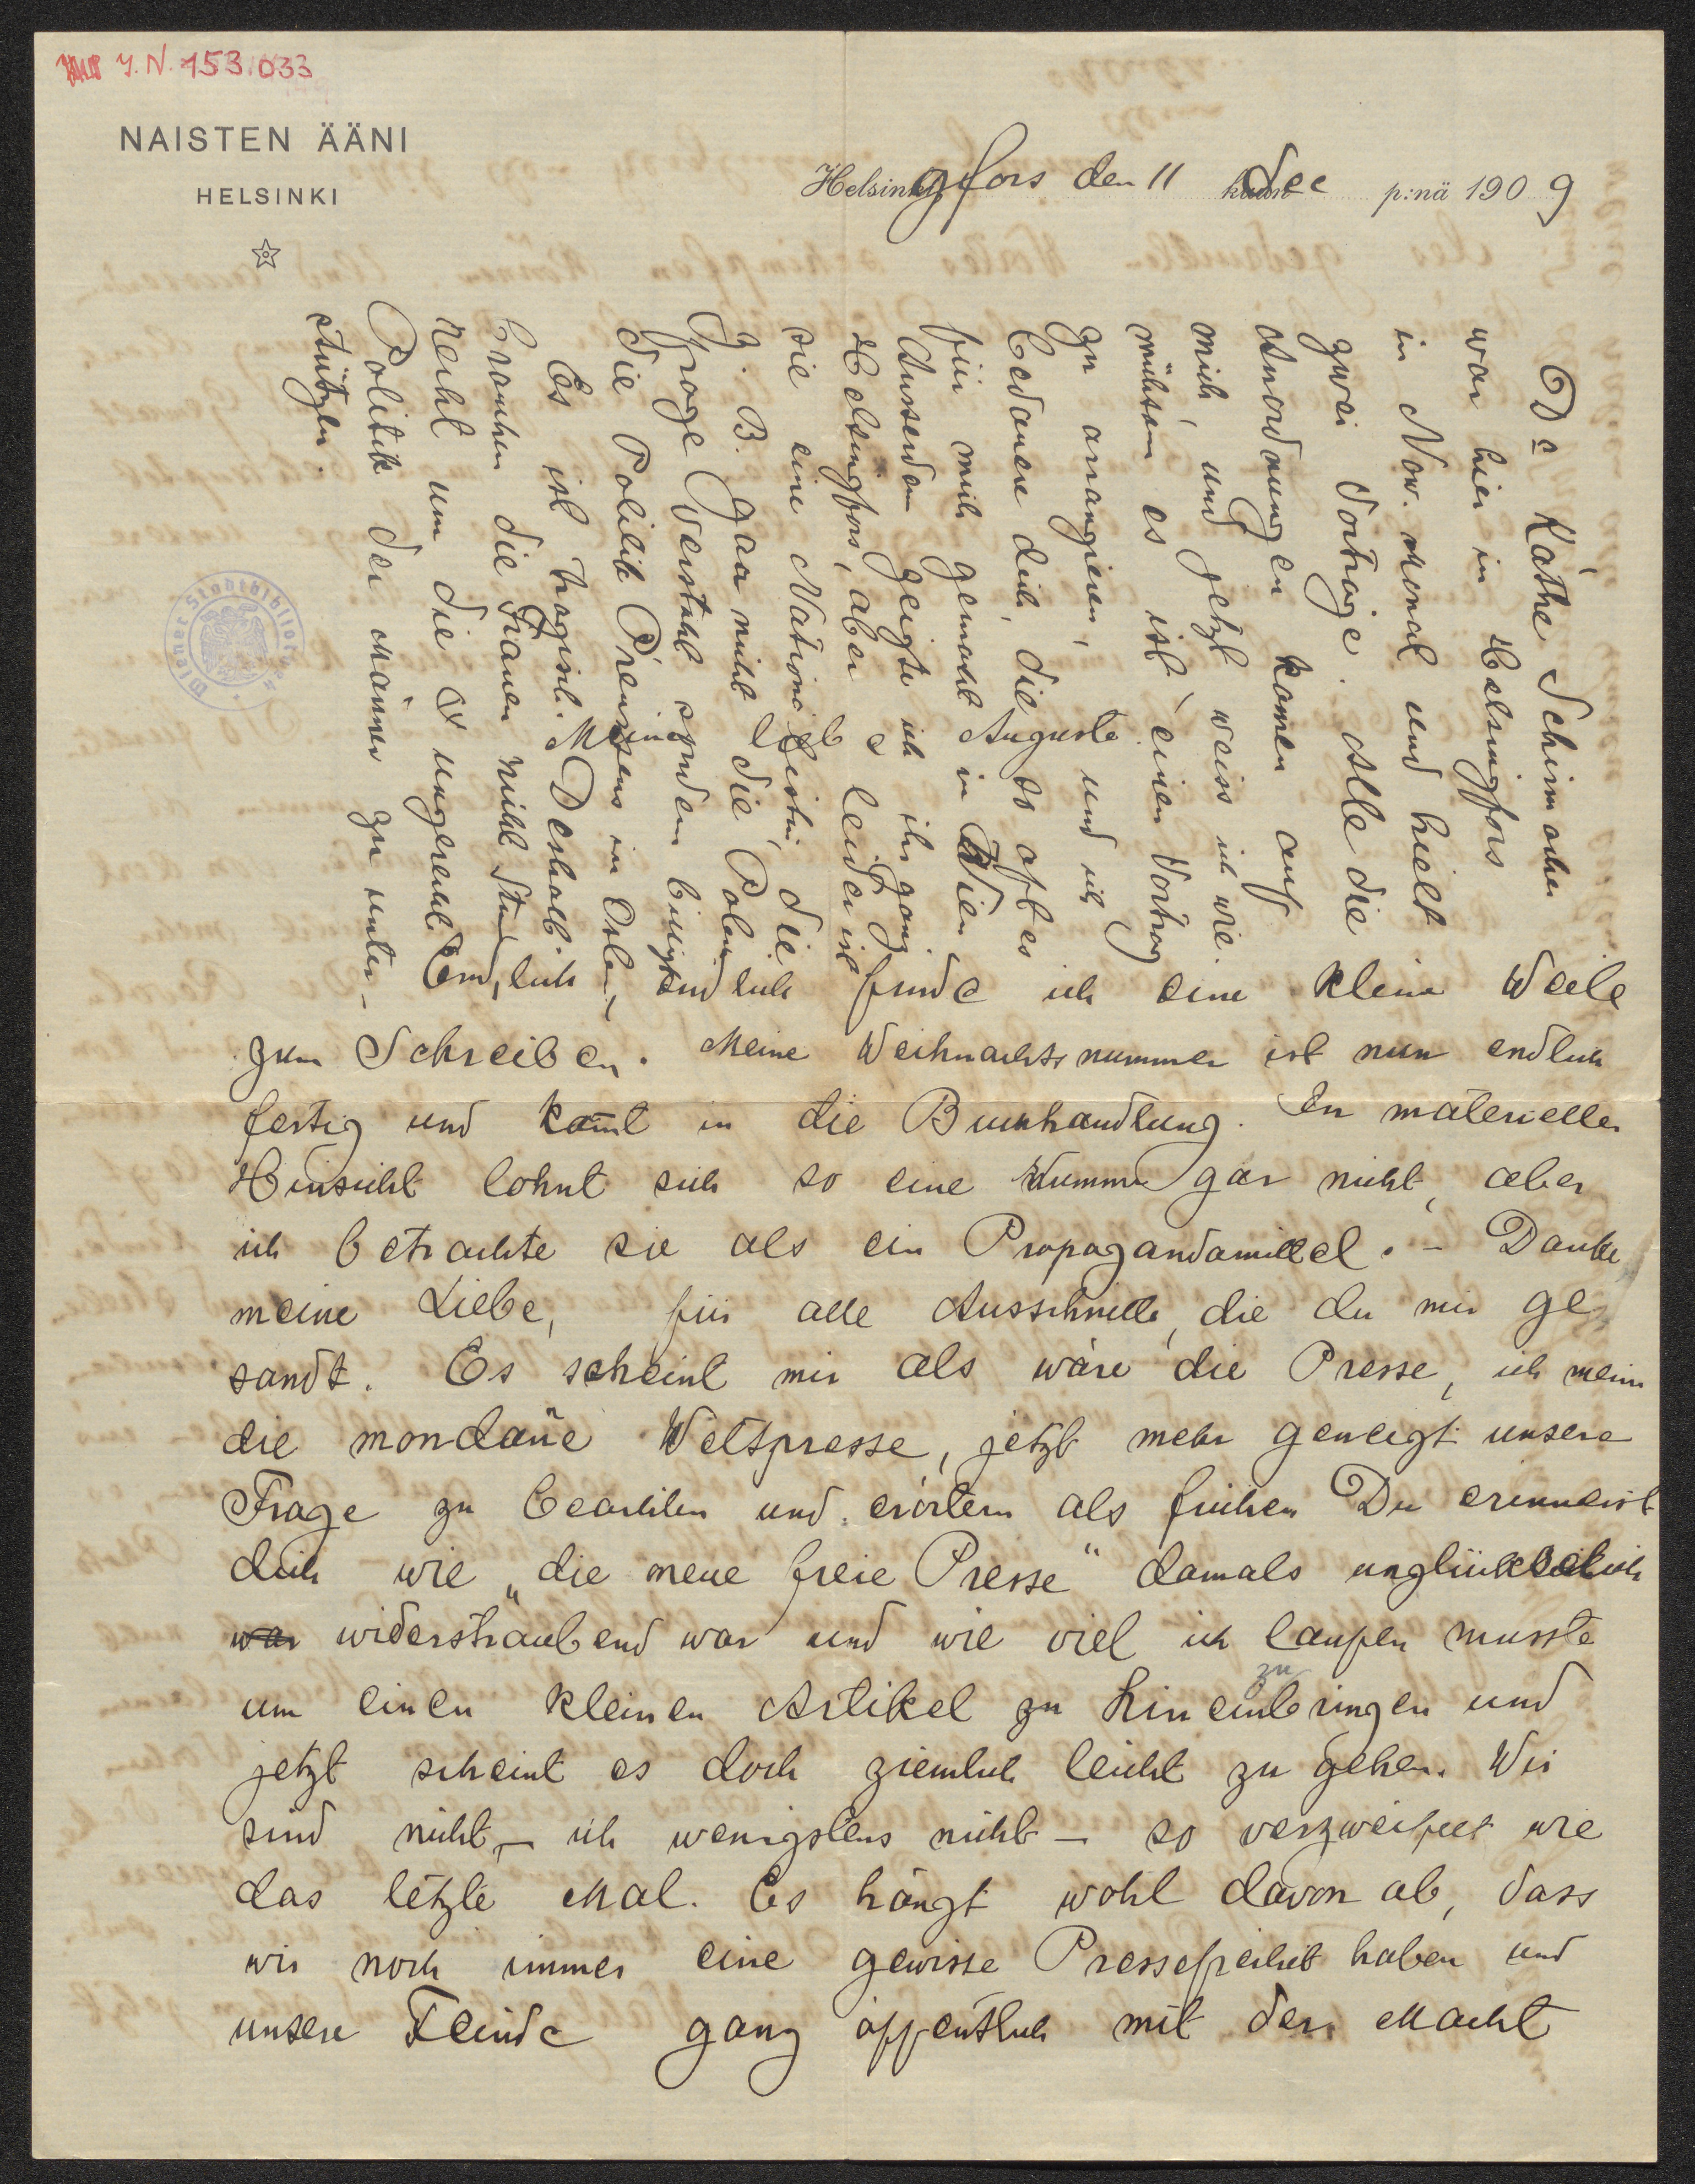 J. N. 153.033
NAISTEN ÄÄNI
HELSINKI
Helsingfors den 11 Dec p:nä 1909
Meine liebe Auguste
Endlich, endlich finde ich eine kleine Weile
zum Schreiben. Meine Weihnachtsnummer ist nun endlich
fertig und kom̄t in die Buchhandlung. In materieller
Hinsicht lohnt sich so eine Nummer gar nicht, aber
ich betrachte sie als ein Propagandamittel. – Danke
meine Liebe, für alle Ausschnitte, die du mir ge-
sandt. Es scheint mir als wäre die Presse, ich meine
die mondäne Weltpresse, jetzt mehr geneigt unsere
Frage zu beachten und erörtern als früher. Du erinnerst
dich wie „die neue freie Presse" damals unglücklich
war widersträubend war und wie viel ich laufen musste
um einen kleinen Artikel zu hineinbringen und
zu
jetzt scheint es doch ziemlich leicht zu gehen. Wir
sind nicht – ich wenigstens nicht – so verzweifelt wie
das letzte Mal. Es hängt wohl davon ab, dass
wir noch immer eine gewisse Pressefreiheit haben und
unsere Feinde ganz öffentlich mit der Macht
Dr Käthe Schirmacher
war hier in Helsingfors
in Nov. Monat und hielt
zwei Vorträge. Alle die
Anordnungen kamen auf
mich, und jetzt weiss ich wie
mühsam es ist, einen Vortrag
zu arrangieren, und ich
bedauere dich, die so oft es
für mich gemacht in Wien
Ausserdem zeigte ich ihr ganz
Helsingfors, aber leider ist
sie eine Nationalistin, die
z. B. gar nicht die Polen
Frage versteht sondern billigt
die Politik Preussens in Polen,
Es ist tragisch. Deshalb
brauchen die Frauen nicht Stim
recht um die ungerecht
Politik der Männer zu unter-
stützen.
Wiener Stadtbibliothek